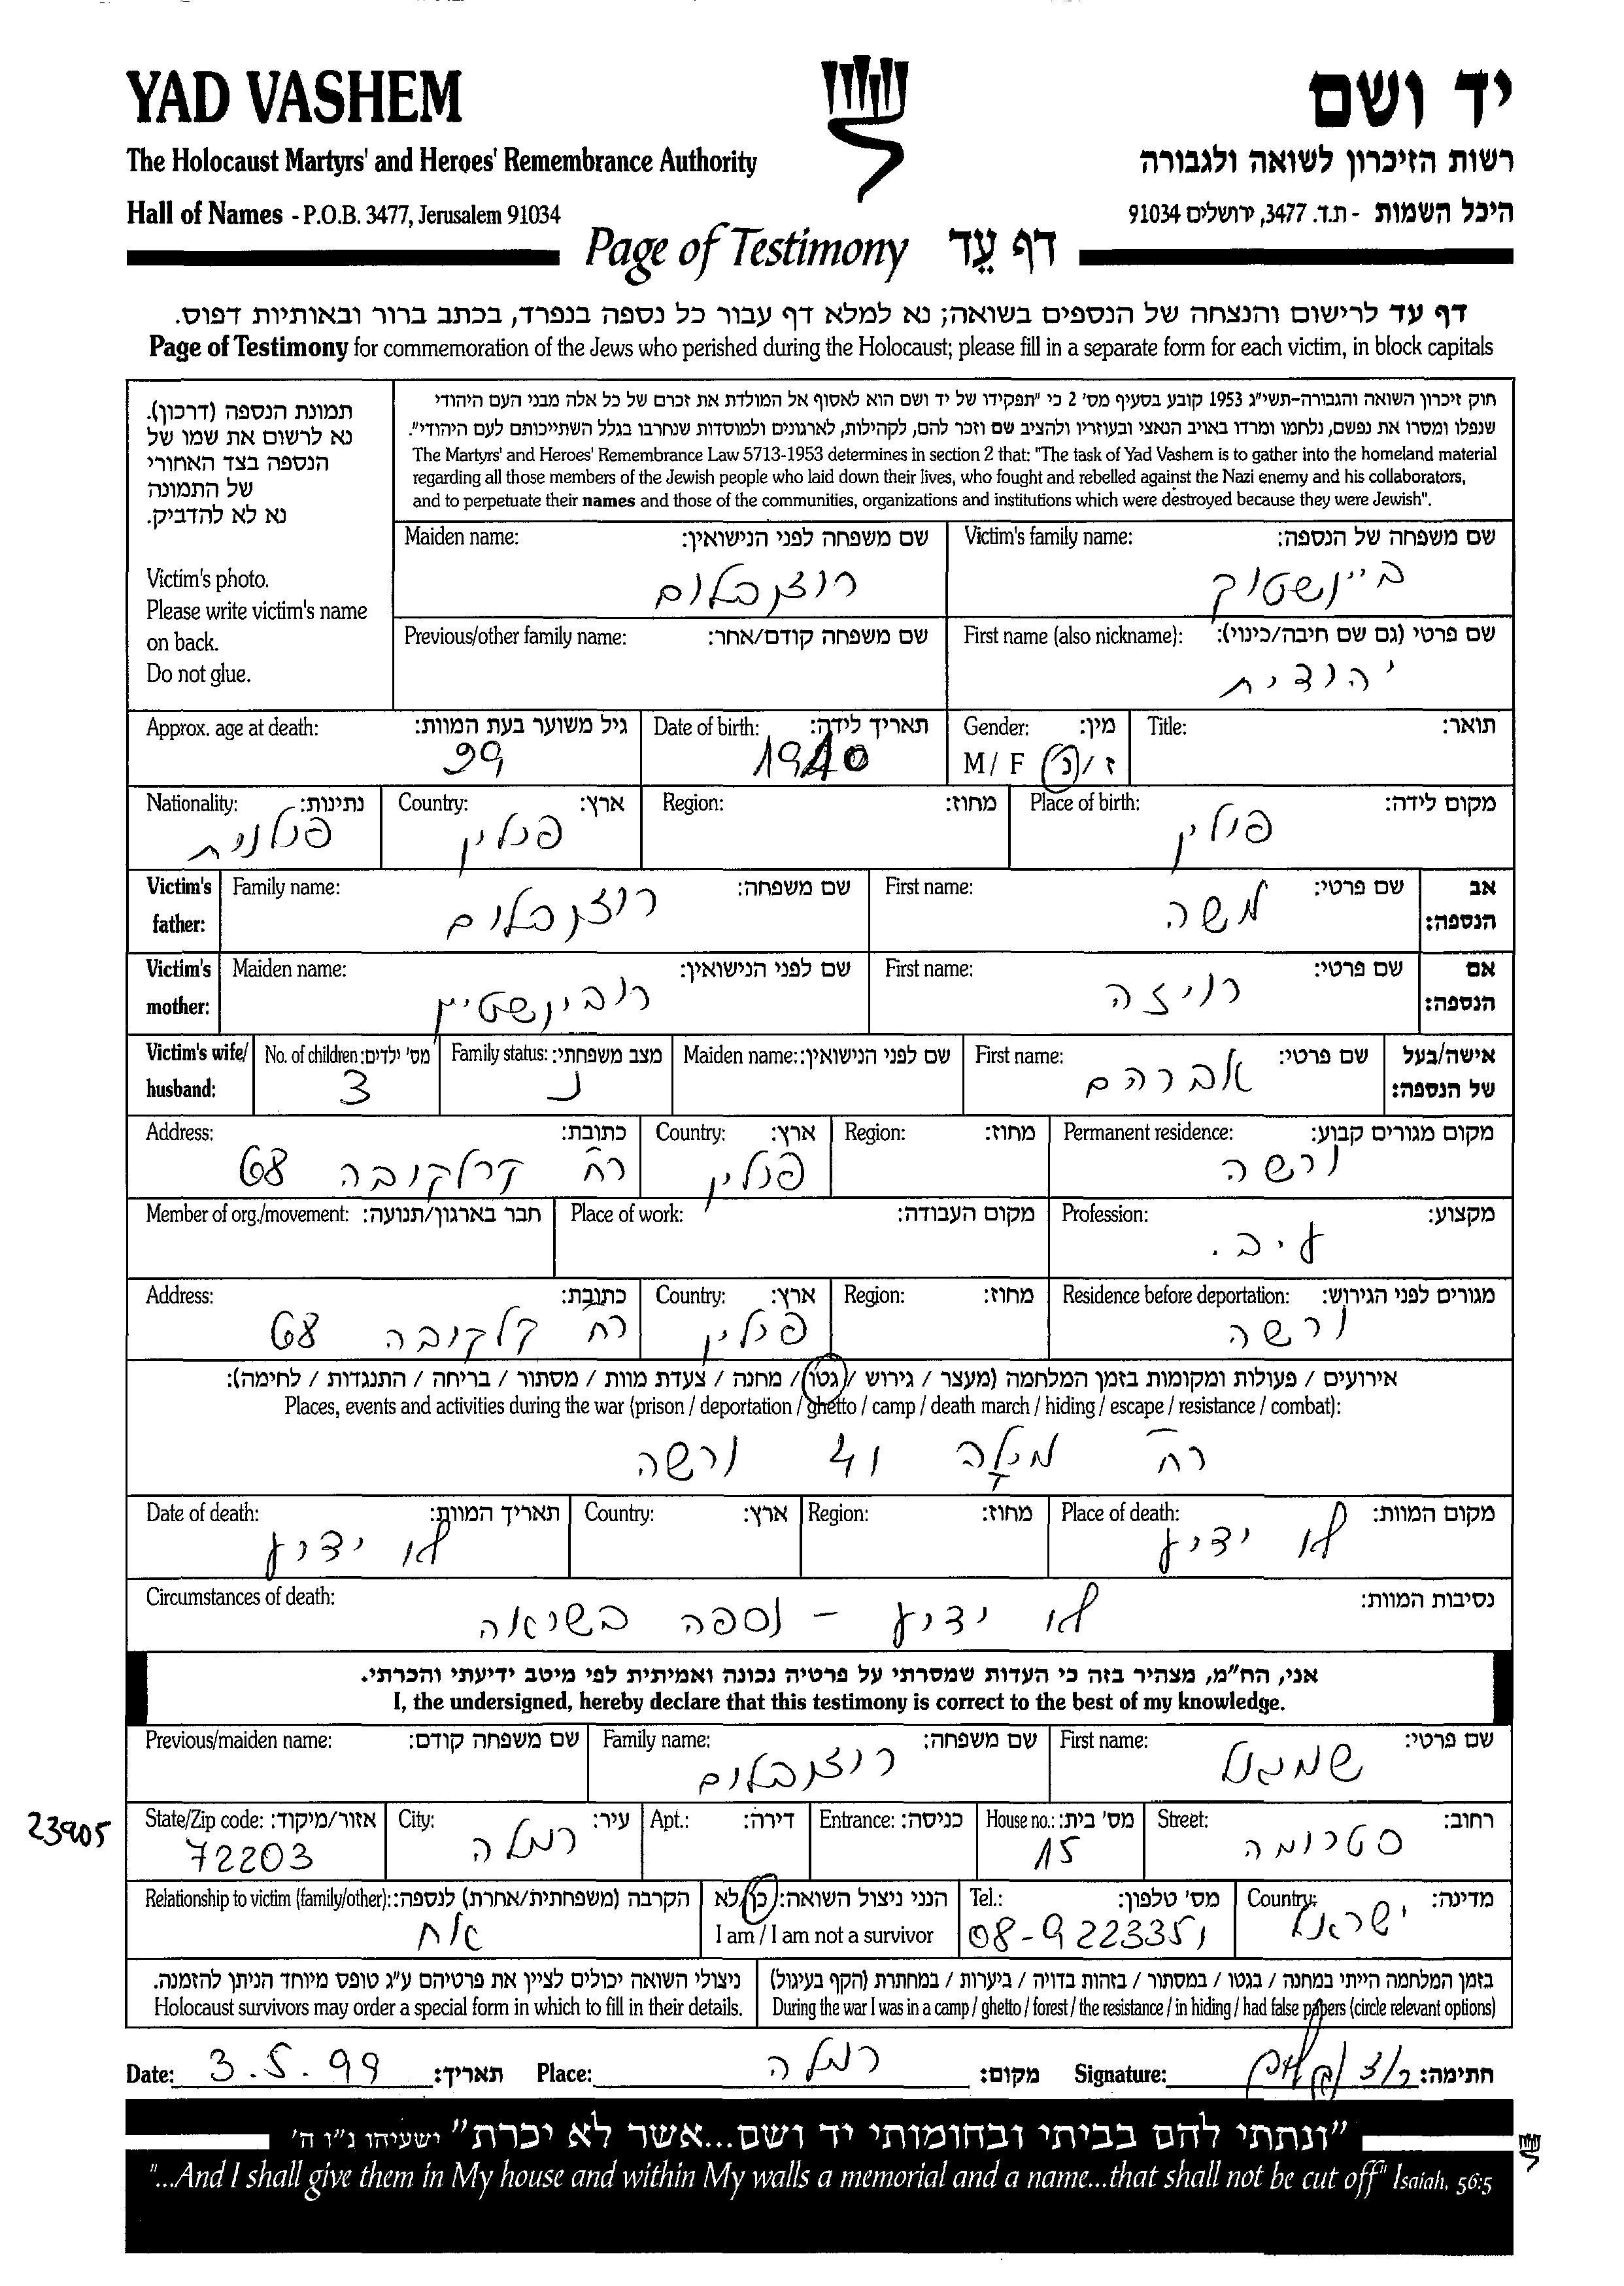 YAD VASHEM
יד ושם
The Holocaust Martyrs' and Heroes' Remembrance Authority
רשות הזיכרון לשואה ולגבורה
Hall of Names - P.O.B. 3477, Jerusalem 91034
היכל השמות - ת.ד. 3477, ירושלים 91034
Page of Testimony דף עֵד
דף עד לרישום והנצחה של הנספים בשואה; נא למלא דף עבור כל נספה בנפרד, בכתב ברור ובאותיות דפוס.
Page of Testimony for commemoration of the Jews who perished during the Holocaust; please fill in a separate form for each victim, in block capitals
תמונת הנספה (דרכון).
נא לרשום את שמו של
הנספה בצד האחורי
של התמונה
נא לא להדביק.
Victim's photo.
Please write victim's name
on back.
Do not glue.
חוק זיכרון השואה והגבורה-תשי"ג 1953 קובע בסעיף מס' 2 כי "תפקידו של יד ושם הוא לאסוף אל המולדת את זכרם של כל אלה מבני העם היהודי
שנפלו ומסרו את נפשם, נלחמו ומרדו באויב הנאצי ובעוזריו ולהציב שם וזכר להם, לקהילות, לארגונים ולמוסדות שנחרבו בגלל השתייכותם לעם היהודי".
The Martyrs' and Heroes' Remembrance Law 5713-1953 determines in section 2 that: "The task of Yad Vashem is to gather into the homeland material
regarding all those members of the Jewish people who laid down their lives, who fought and rebelled against the Nazi enemy and his collaborators,
and to perpetuate their names and those of the communities, organizations and institutions which were destroyed because they were Jewish".
Victim's family name: שם משפחה של הנספה:
ביינשטוק
Maiden name: שם משפחה לפני הנישואין:
רוזנבלום
First name (also nickname): שם פרטי (גם שם חיבה/כינוי):
יהודית
Previous/other family name: שם משפחה קודם/אחר:
Title: תואר:
Gender: מין:
M / F ז / נ
Date of birth: תאריך לידה:
1910
Approx. age at death: גיל משוער בעת המוות:
29
Place of birth: מקום לידה:
פולין
Region: מחוז:
Country: ארץ:
פולין
Nationality: נתינות:
פולנית
Victim's father: אב הנספה:
First name: שם פרטי:
משה
Family name: שם משפחה:
רוזנבלום
Victim's mother: אם הנספה:
First name: שם פרטי:
רויזה
Maiden name: שם לפני הנישואין:
רובינשטיין
Victim's wife/ husband: אישה/בעל של הנספה:
First name: שם פרטי:
אברהם
Maiden name: שם לפני הנישואין:
Family status: מצב משפחתי:
נ
No. of children: מס' ילדים:
3
Permanent residence: מקום מגורים קבוע:
ורשה
Region: מחוז:
Country: ארץ:
פולין
Address: כתובת:
רח' 68
Profession: מקצוע:
ע.ב.
Place of work: מקום העבודה:
Member of org./movement: חבר בארגון/תנועה:
Residence before deportation: מגורים לפני הגירוש:
ורשה
Region: מחוז:
Country: ארץ:
פולין
Address: כתובת:
רח' 68
אירועים / פעולות ומקומות בזמן המלחמה (מעצר / גירוש / גטו / מחנה / צעדת מוות / מסתור / בריחה / התנגדות / לחימה):
Places, events and activities during the war (prison / deportation / ghetto / camp / death march / hiding / escape / resistance / combat):
רח' מילה 41 ורשה
Place of death: מקום המוות:
לא ידוע
Region: מחוז:
Country: ארץ:
Date of death: תאריך המוות:
לא ידוע
Circumstances of death: נסיבות המוות:
לא ידוע - נספה בשואה
אני, הח"מ, מצהיר בזה כי העדות שמסרתי על פרטיה נכונה ואמיתית לפי מיטב ידיעתי והכרתי.
I, the undersigned, hereby declare that this testimony is correct to the best of my knowledge.
First name: שם פרטי:
שמואל
Family name: שם משפחה:
רוזנבלום
Previous/maiden name: שם משפחה קודם:
Street: רחוב:
סטרומה
House no.: מס' בית:
15
Entrance: כניסה:
Apt.: דירה:
City: עיר:
רמלה
State/Zip code: אזור/מיקוד:
72203
23905
Country: מדינה:
ישראל
Tel.: מס' טלפון:
08-9223351
הנני ניצול השואה: כן/לא
I am / I am not a survivor
Relationship to victim (family/other): הקרבה (משפחתית/אחרת) לנספה:
אח
בזמן המלחמה הייתי במחנה / בגטו / במסתור / בזהות בדויה / ביערות / במחתרת (הקף בעיגול)
During the war I was in a camp / ghetto / forest / the resistance / in hiding / had false papers (circle relevant options)
ניצולי השואה יכולים לציין את פרטיהם ע"ג טופס מיוחד הניתן להזמנה.
Holocaust survivors may order a special form in which to fill in their details.
Date: 3.5.99 תאריך: Place: רמלה מקום: Signature: חתימה:
"ונתתי להם בביתי ובחומותי יד ושם...אשר לא יכרת" ישעיהו נ"ו ה'
"...And I shall give them in My house and within My walls a memorial and a name...that shall not be cut off" Isaiah, 56:5